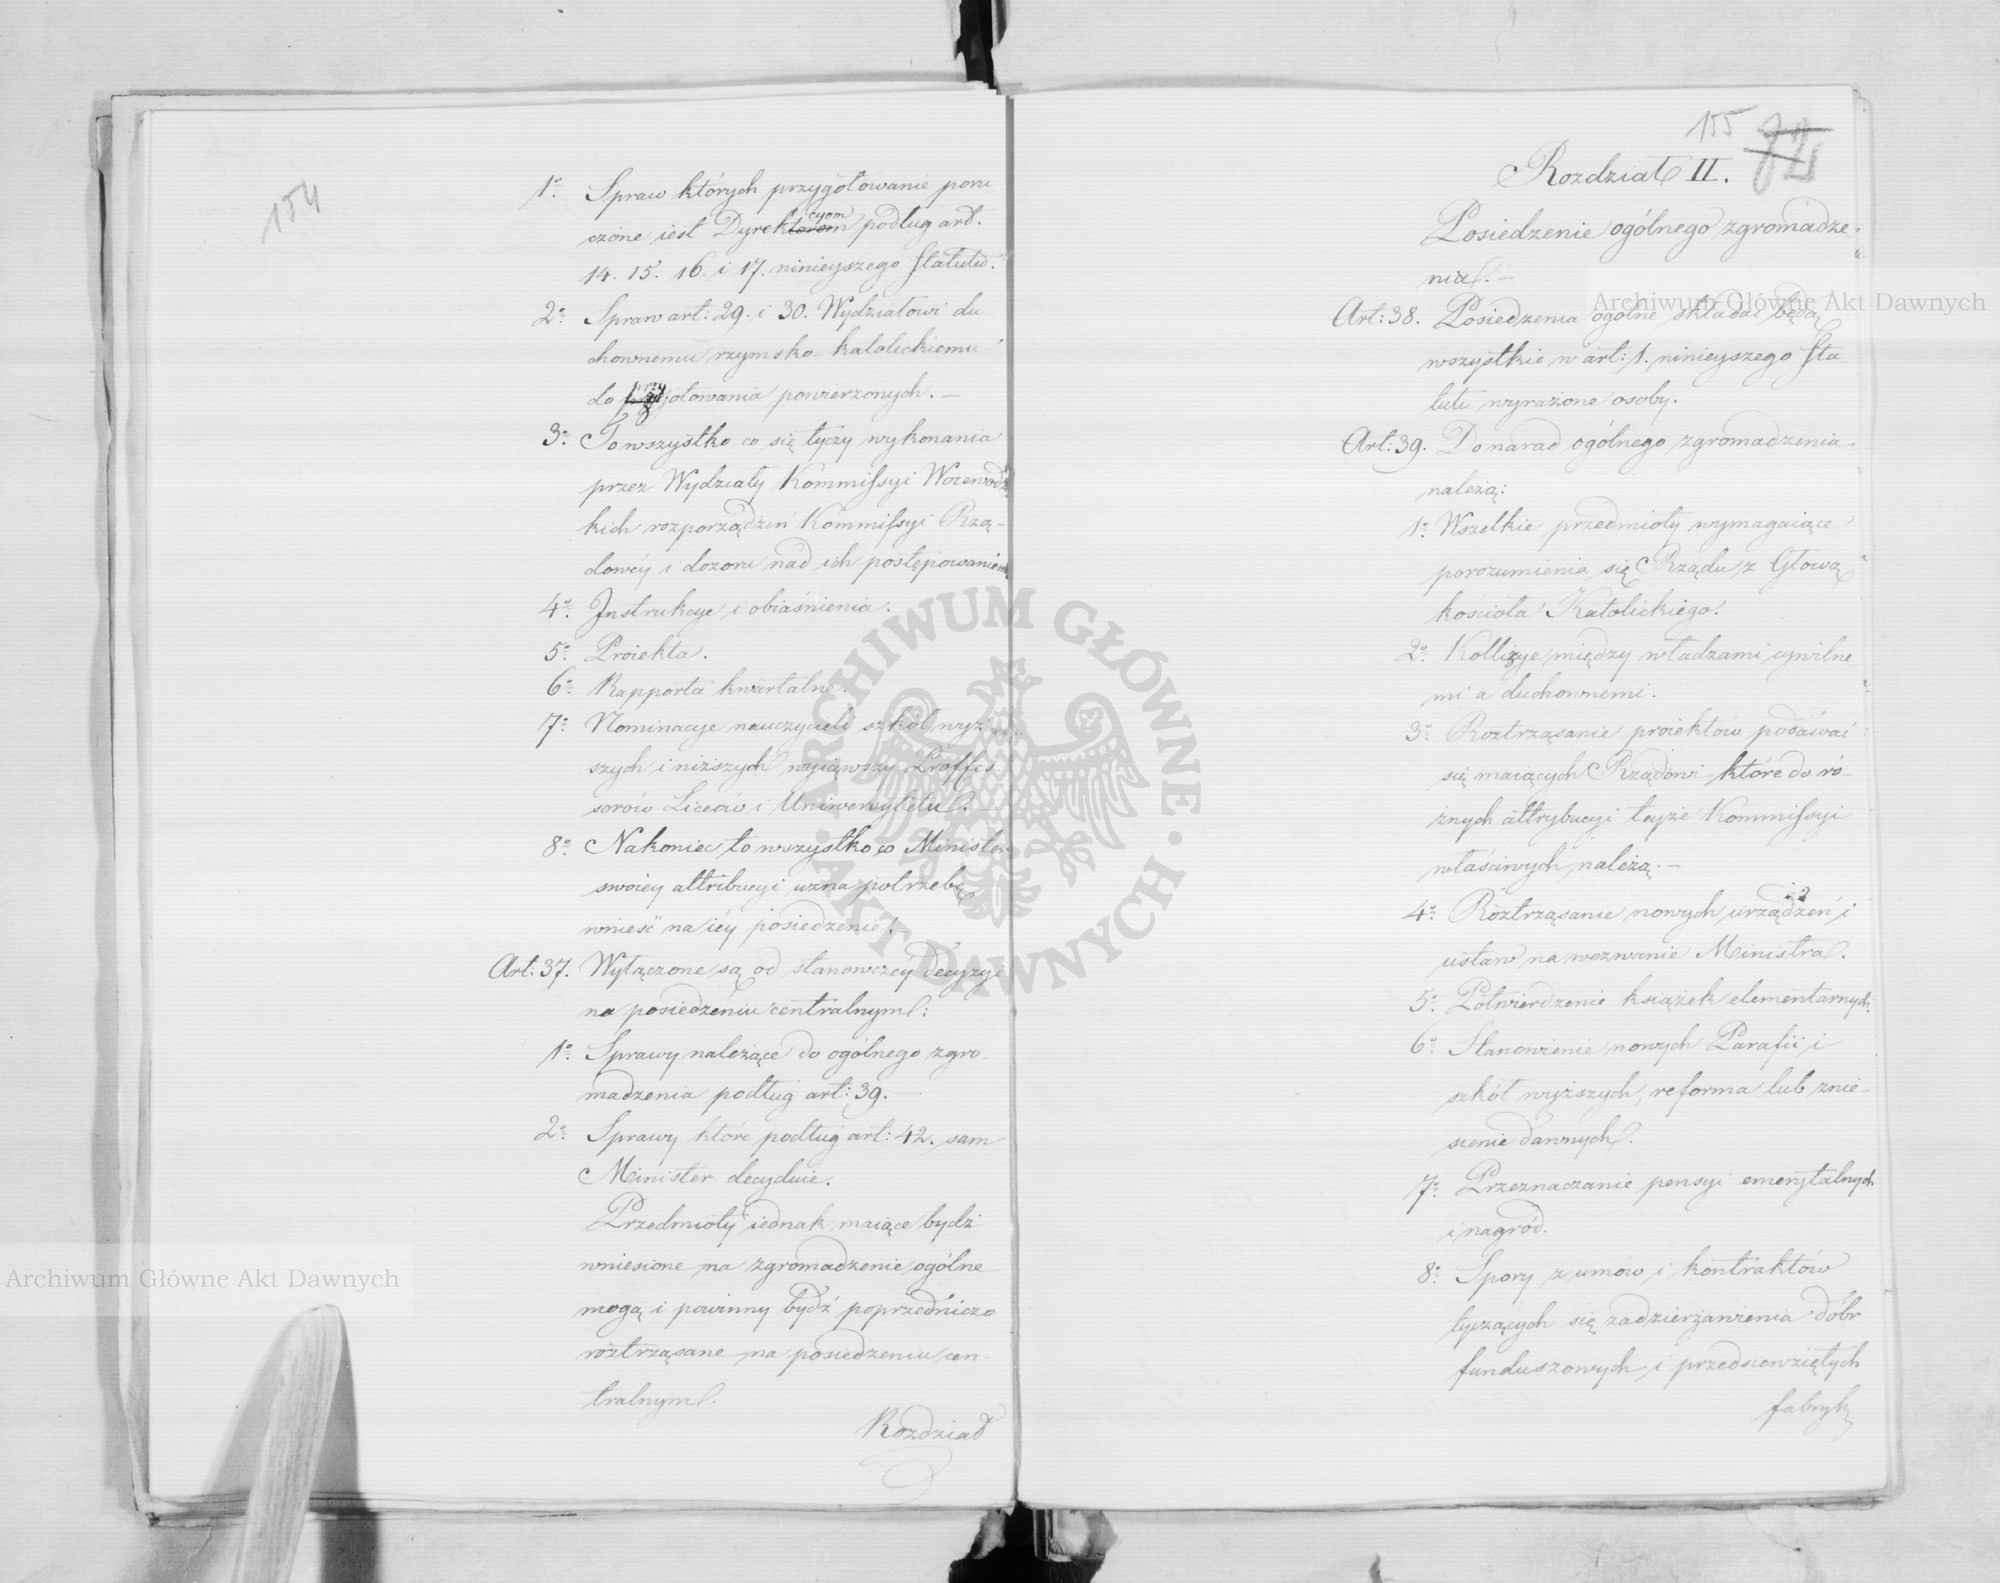 154
1º. Spraw których przygotowanie poru
czone iest Dyrektorom cyom podług art.
14. 15. 16. i 17. ninieyszego statutu.
2º. Spraw art: 29. i 30. Wydziałowi du
chownemu rzymsko-katolickiemu
do przygotowania powierzonych. —
3º. To wszystko co się tyczy wykonania
przez Wydziały Kommissyi Woiewodz
kich rozporządzeń Kommissyi Rzą-
dowéy i dozoru nad ich postępowaniem
4º. Instrukcye i obiaśnienia.
5º. Proiekta.
6º. Rapporta kwartalne.
7º. Nominacye nauczycieli szkół wyż
szych i niższych wyiąwszy Proffes
sorów Liceów i Uniwersytetu. —
8º. Nakoniec to wszystko co Minister
swoiey attribucyi uzna potrzebę
wnieść na iéy posiedzenie. —
Art: 37. Wyłączone są od stanowczéy decyzyi
na posiedzeniu centralnym:
1º. Sprawy należące do ogólnego zgro-
madzenia podług art: 39. —
2º. Sprawy które podług art: 42. sam
Minister decyduie.
Przedmioty iednak maiące bydź
wniesione na zgromadzenie ogólne
mogą i powinny bydź poprzedniczo
roztrząsane na posiedzeniu cen-
tralnym.
Rozdział
155
72
Rozdział II.
Posiedzenie ogólnego zgromadze-
nia. —
Art: 38. Posiedzenia ogólne składać będą
wszystkie w art: 1. ninieyszego sta
tutu wyrażone osoby.
Art: 39. Do narad ogólnego zgromadzenia
należą:
1º. Wszelkie przedmioty wymagaiące
porozumienia się Rządu z Głową
kościoła Katolickiego.
2º. Kollizye między władzami cywilne
mi a duchownemi.
3º. Roztrząsanie proiektów podawać
się maiących Rządowi które do ró-
żnych attrybucyi teyże Kommissyi
właściwych należą. —
4º. Roztrząsanie nowych urządzeń i
ustaw na wezwanie Ministra.
5º. Potwierdzenie książek elementarnych.
6º. Stanowienie nowych Parafii i
szkół wyższych, reforma lub znie-
sienie dawnych.
7º. Przeznaczanie pensyi emerytalnych
i nagród.
8º. Spory z umów i kontraktów
tyczących się zadzierżawienia dóbr
funduszowych i przedsiewziętych
fabryk
Archiwum Główne Akt Dawnych
Archiwum Główne Akt Dawnych
ARCHIWUM GŁÓWNE · AKT DAWNYCH ·